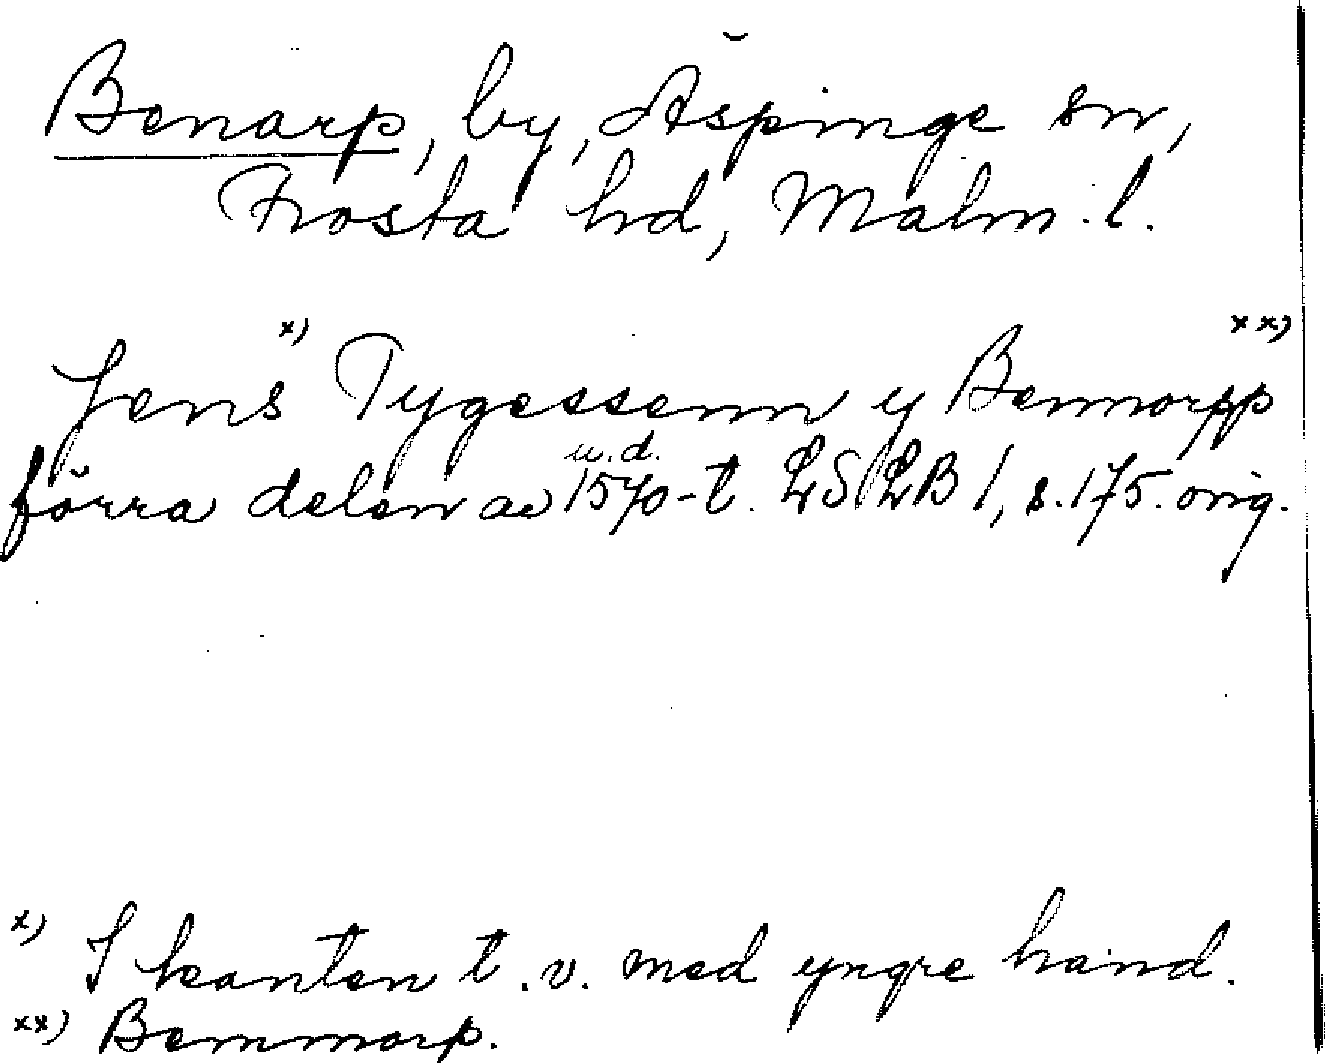 Benarp, by, Äspinge sn,
Frosta hd, Malm. l.
Jens x) Tygessenn y Bennorpp xx)
u.d.
förra delen av 1570-t. LSLB 1, s. 175. orig.
x) I kanten t.v. med yngre hand.
xx) Bemmorp.